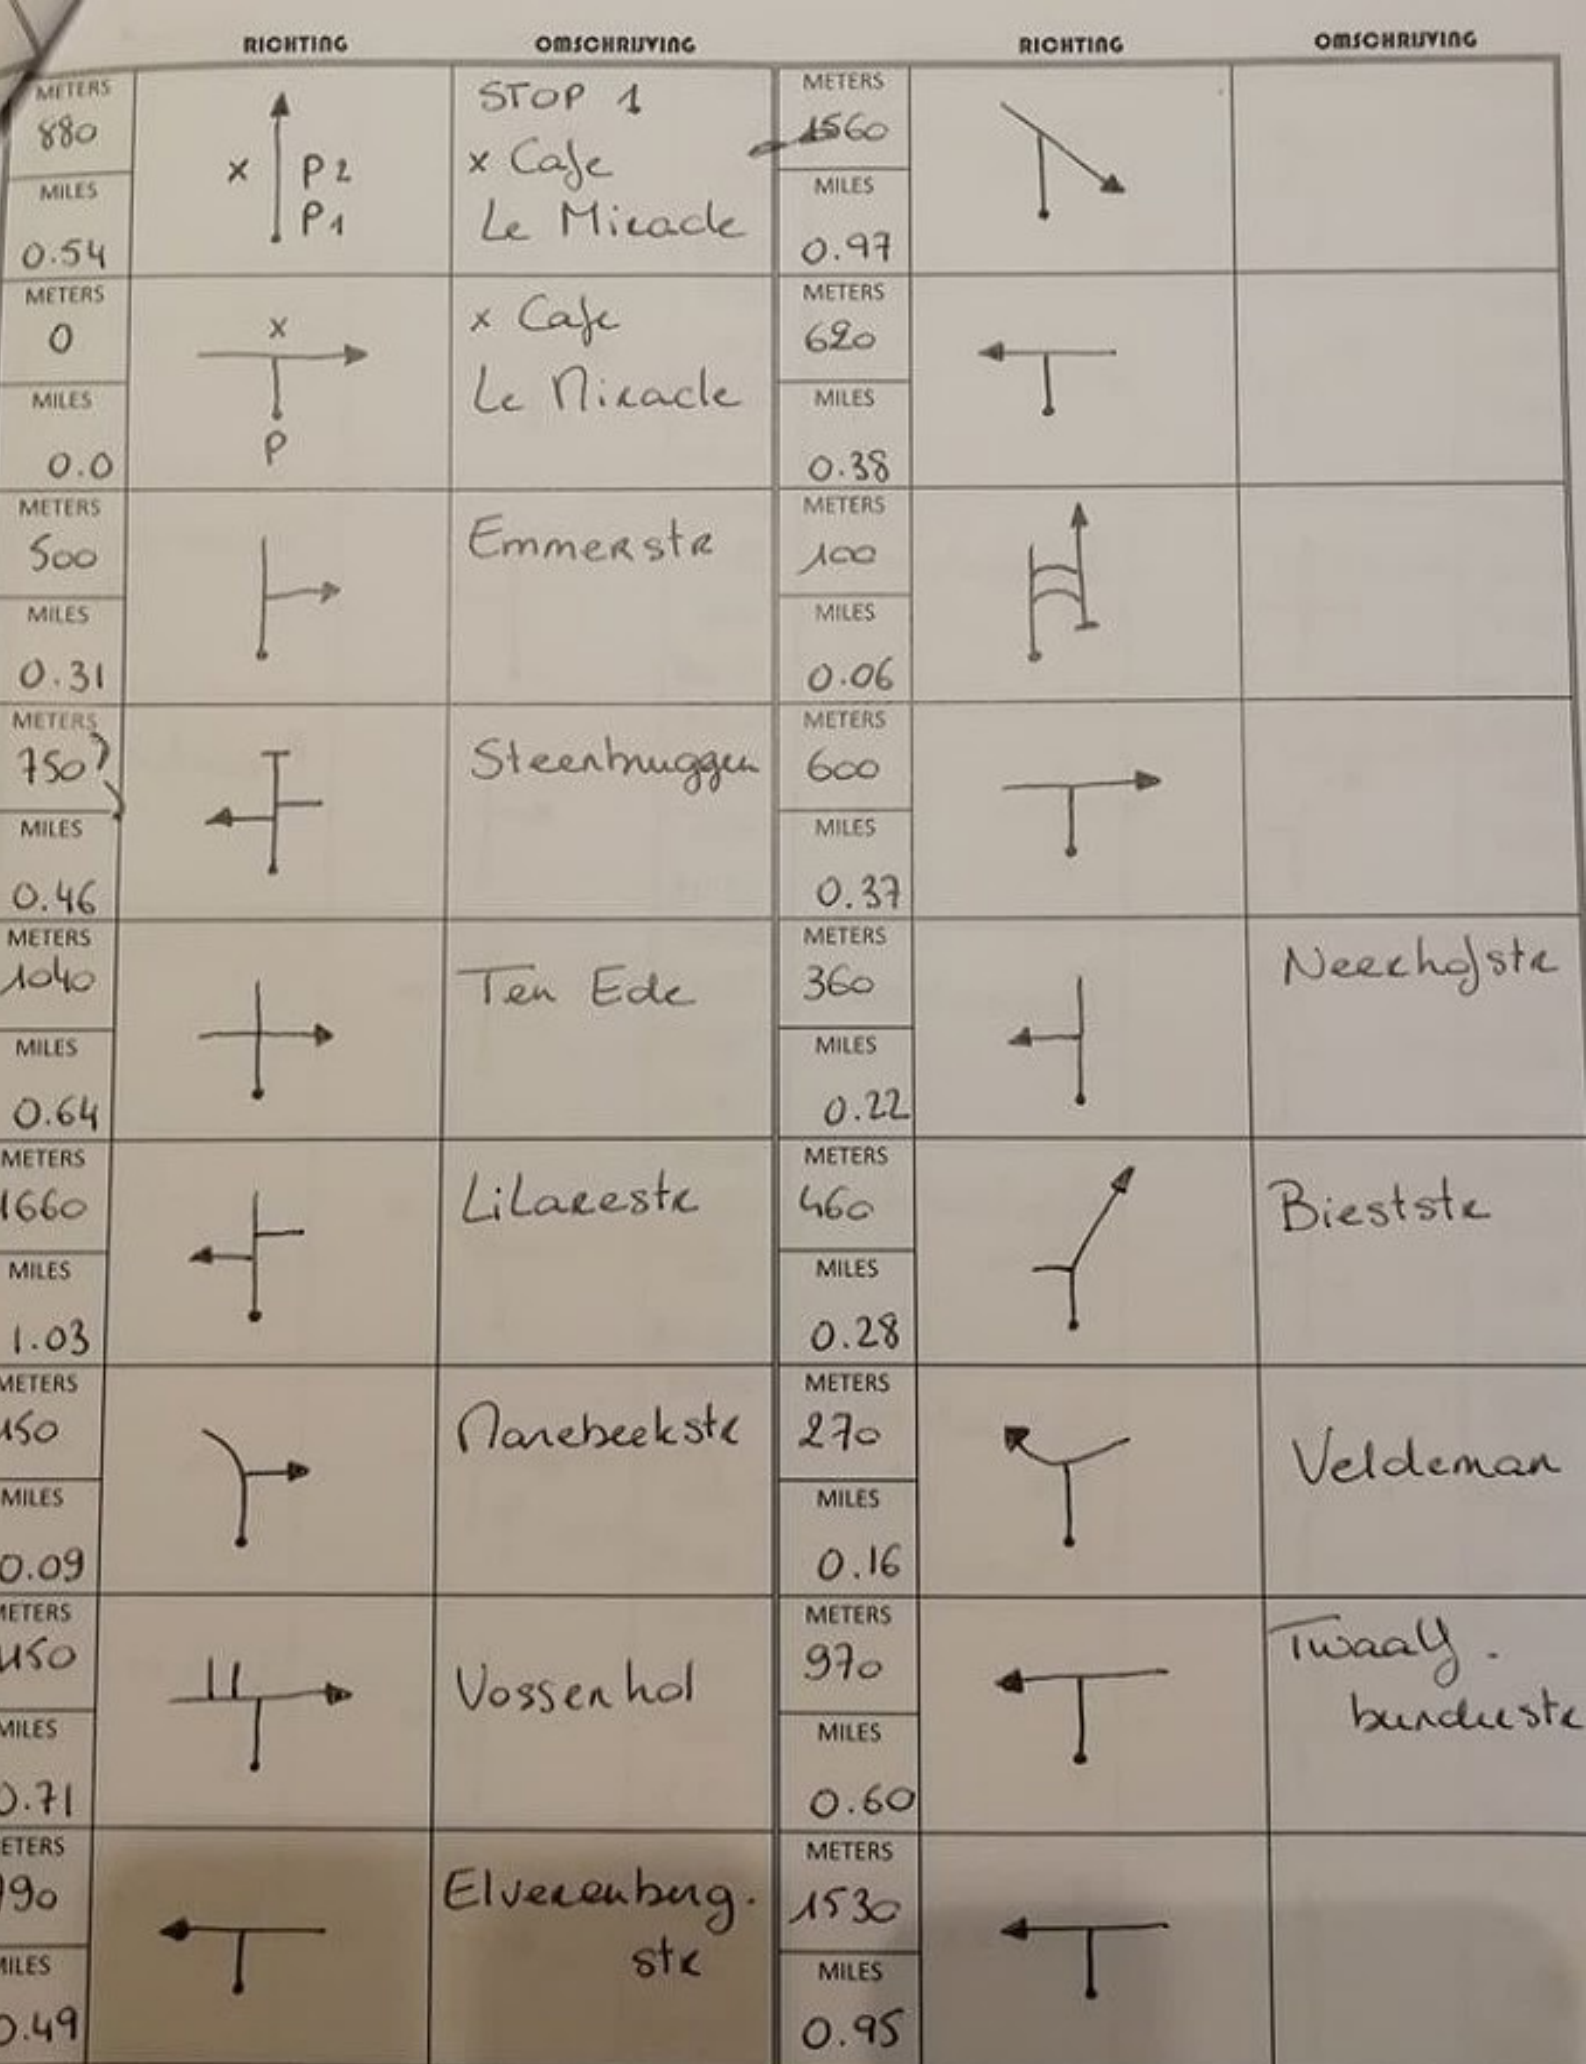 RICHTING OMSCHRIJVING
METERS
880
MILES
0.54
x P2
P1
STOP 1
x Cafe
Le Miracle
METERS
0
MILES
0.0
x
P
x Cafe
Le Miracle
METERS
500
MILES
0.31
Emmerstr
METERS
750
MILES
0.46
Steenbruggen
METERS
1040
MILES
0.64
Ten Ede
METERS
1660
MILES
1.03
Lilarestr
METERS
150
MILES
0.09
Manebeekstr
METERS
MILES
0.71
Vossenhol
METERS
MILES
0.49
Elverenberg.
str
RICHTING OMSCHRIJVING
METERS
1560
MILES
0.97
METERS
620
MILES
0.38
METERS
100
MILES
0.06
METERS
600
MILES
0.37
METERS
360
MILES
0.22
Neerhofstr
METERS
460
MILES
0.28
Bieststr
METERS
270
MILES
0.16
Veldeman
METERS
970
MILES
0.60
Twaalf.
bunderstr
METERS
1530
MILES
0.95